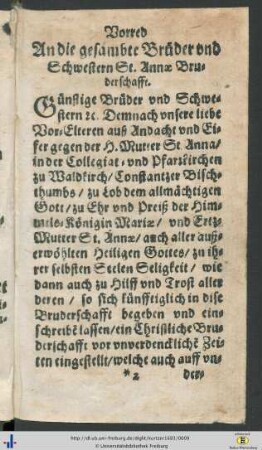 Vorred
An die gesambte Brüder vnd
Schwestern St. Annæ Bru-
derschafft.
Günstige Brüder vnd Schwe-
stern ꝛc. Demnach vnsere liebe
Vor-Elteren auß Andacht vnd Ei-
fer gegen der H. Mutter St Anna/
in der Collegiat- vnd Pfarzkirchen
zu Waldkirch/ Constantzer Bisch-
thumbs/ zu Lob dem allmächtigen
Gott/ zu Ehr vnd Preiß der Him-
mels-Königin Mariæ/ vnd Ertz-
Mutter St, Annæ/ auch aller auß-
erwöhlten Heiligen Gottes/ zu ih-
rer selbsten Seelen Seligkeit/ wie
dann auch zu Hilff vnd Trost aller
deren/ so sich künfftiglich in dise
Bruderschafft begeben vnd ein-
schreibē lassen/ ein Christliche Bru-
derschafft vor vnverdencklichē Zei-
ten eingestellt/ welche auch auff vn-
* 2 der-
http://dl.ub.uni-freiburg.de/diglit/kurtzer1693/0009
© Universitätsbibliothek Freiburg